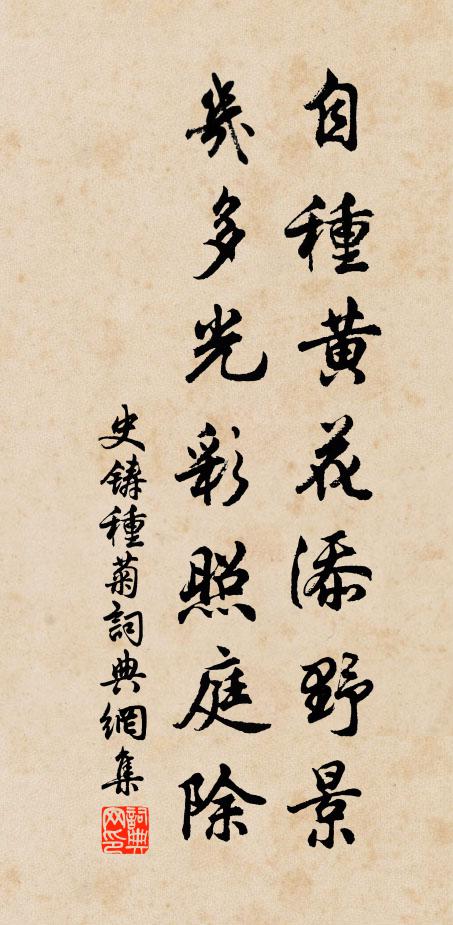 自種黄花添野景
幾多光彩照庭除
史鑄種菊詞典網集
詞典网印